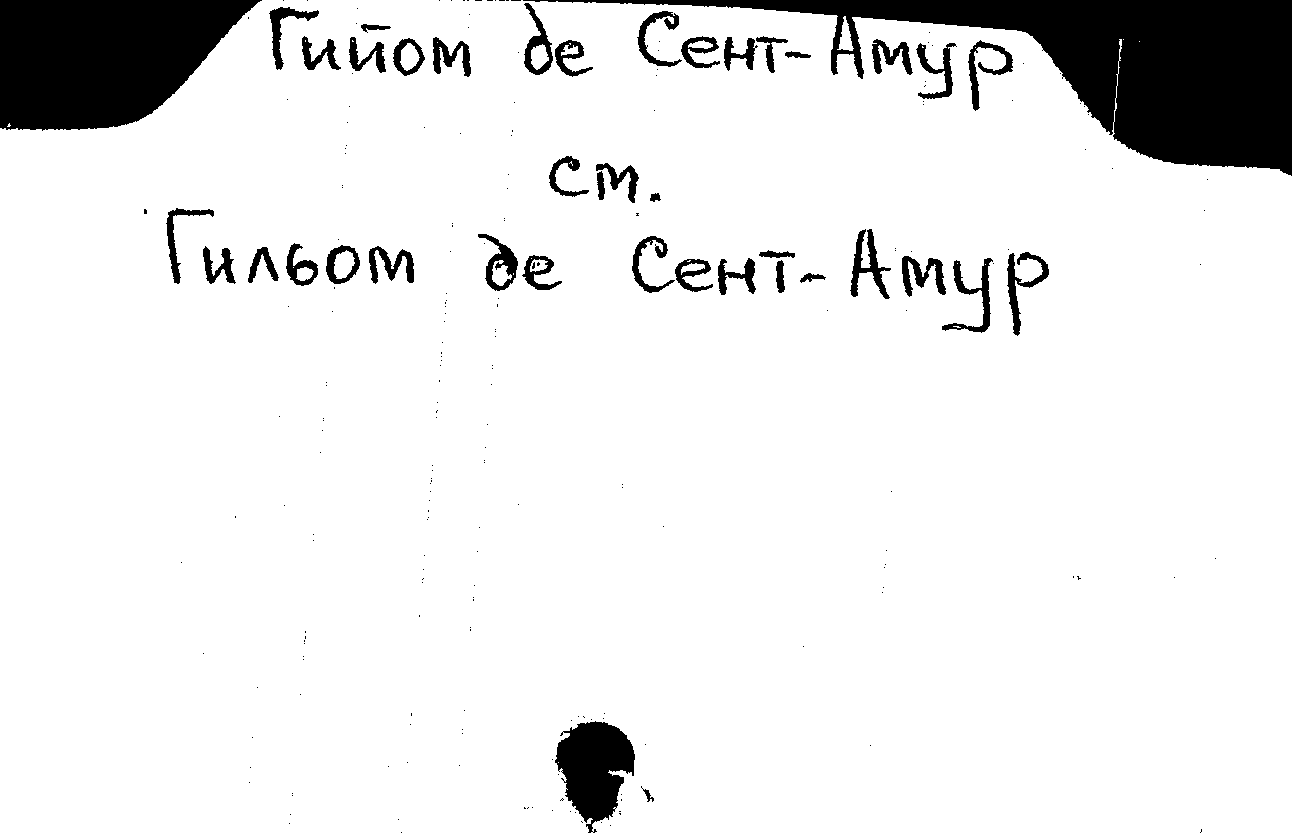 Гийом де Сент-Амур
см.
Гильом де Сент-Амур